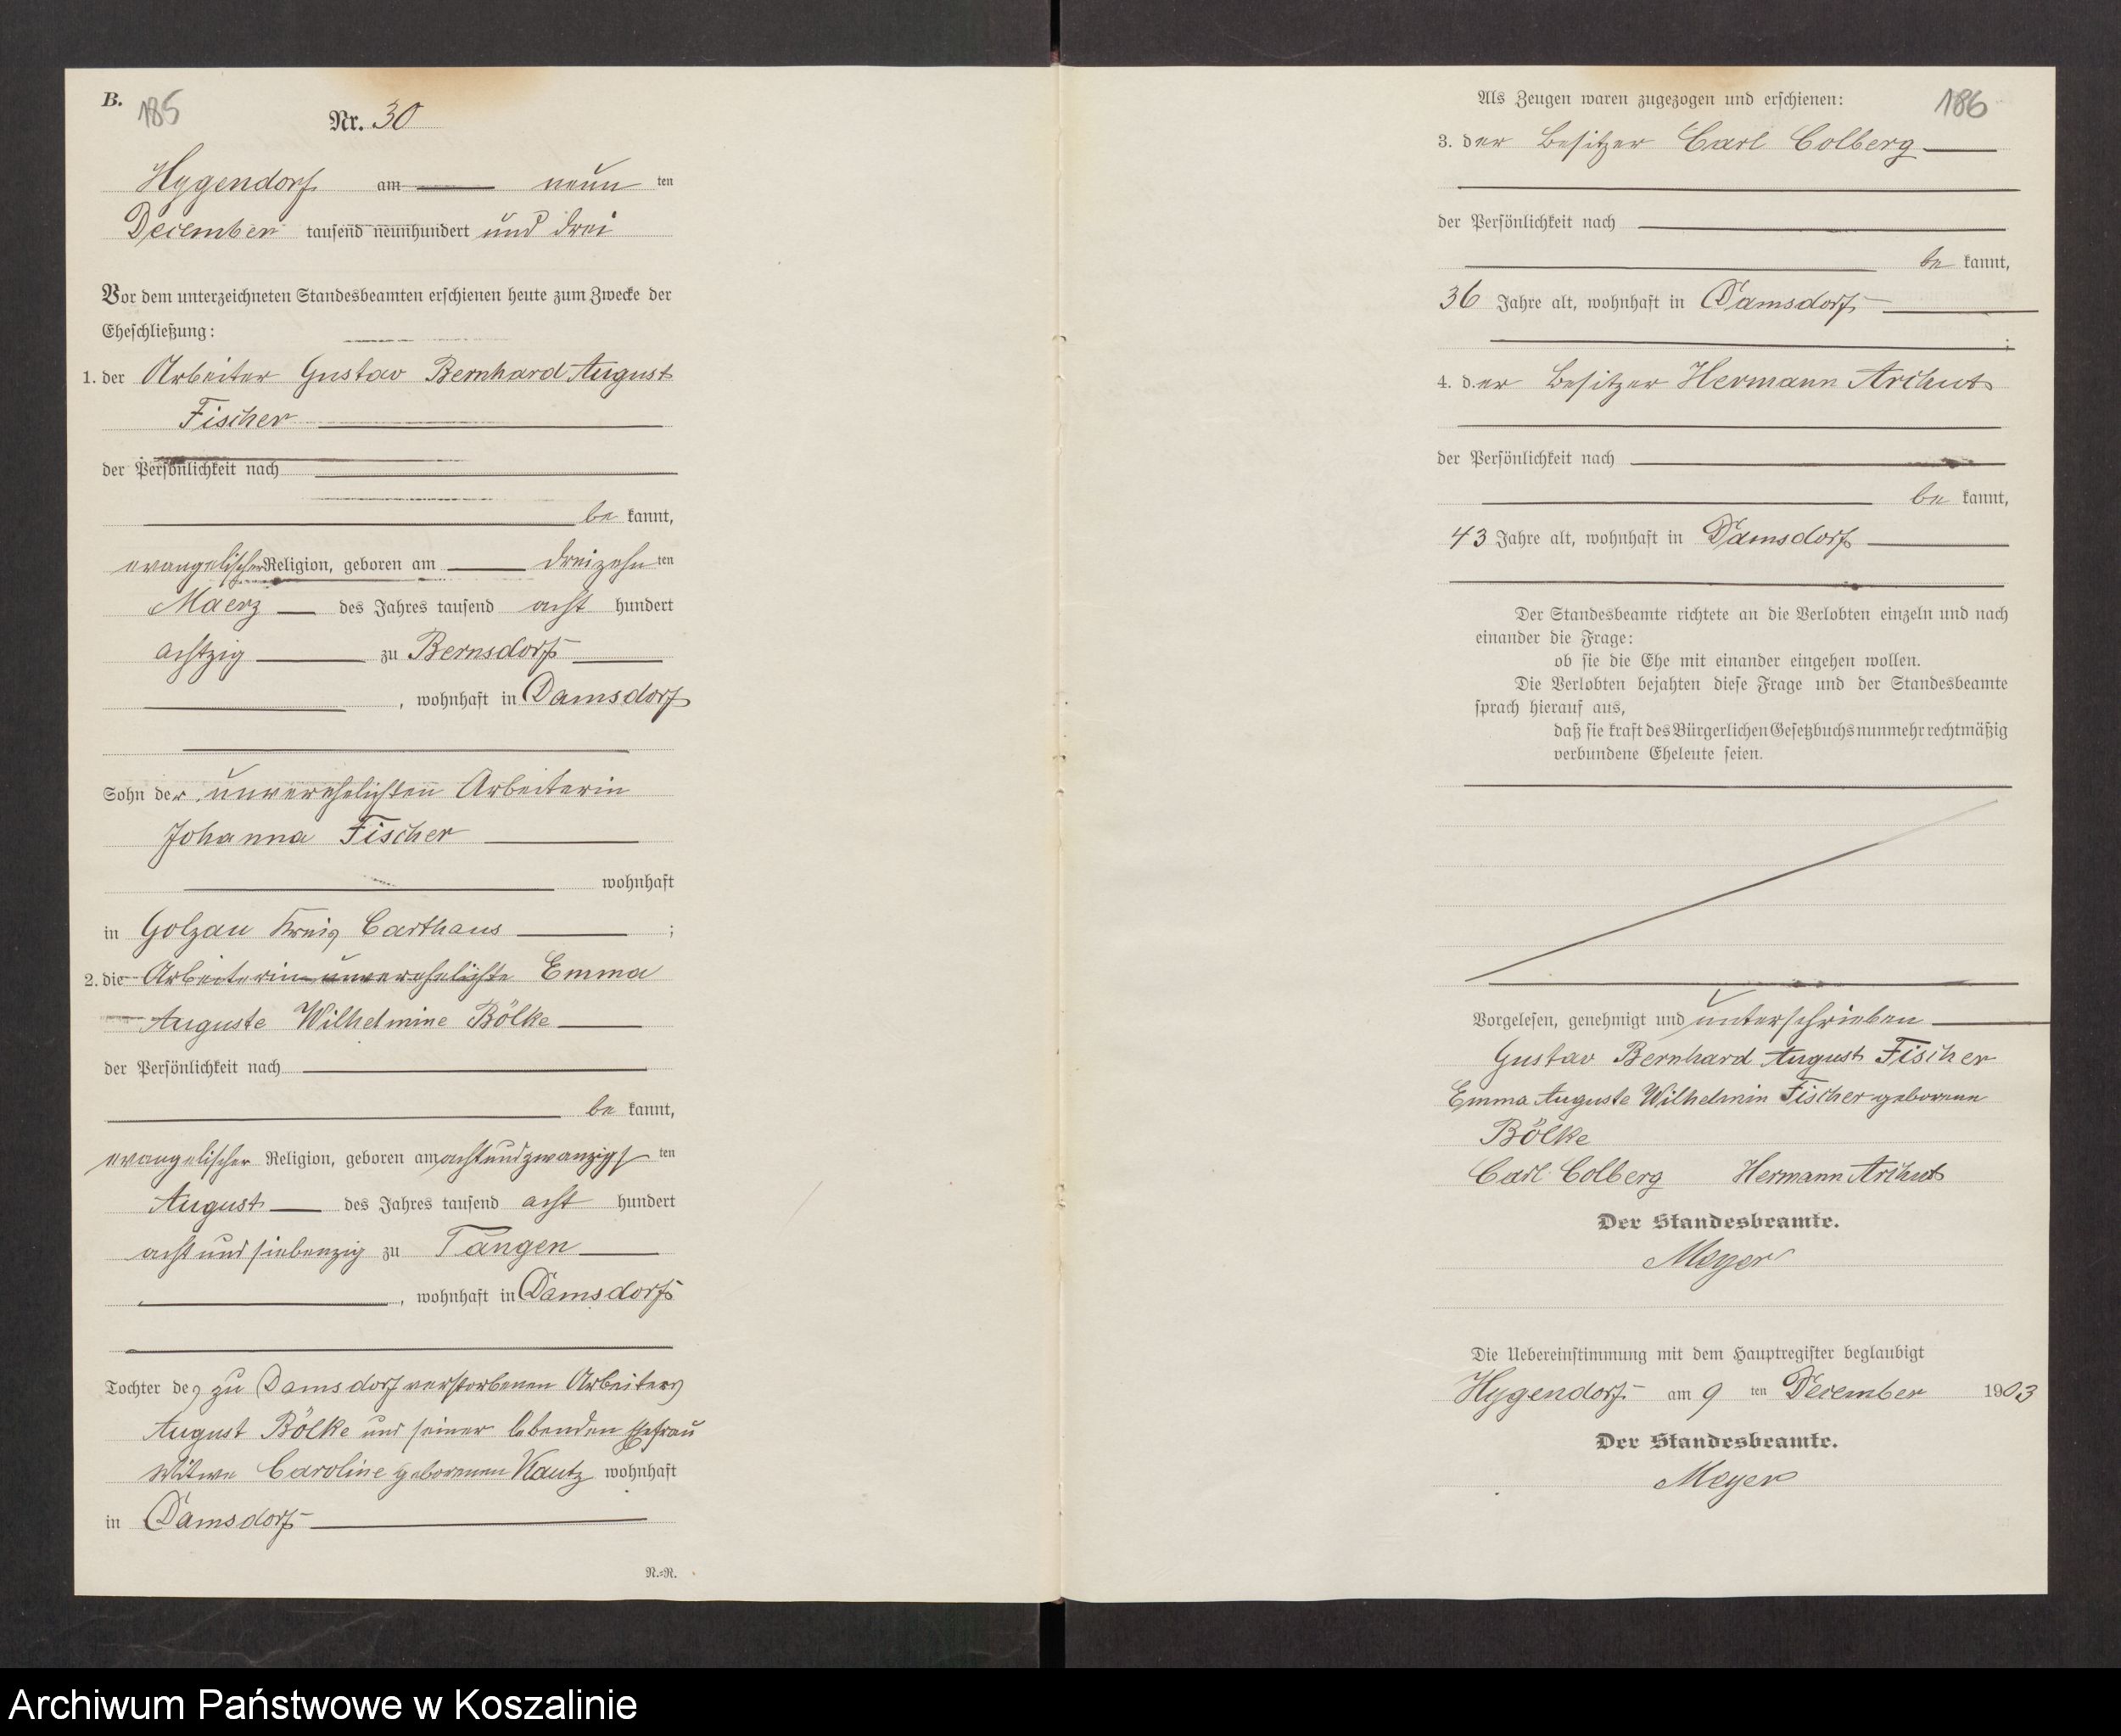 B.
185
Nr. 30
Hygendorf am neun ten
December tausend neunhundert und drei
Vor dem unterzeichneten Standesbeamten erschienen heute zum Zwecke der
Eheschließung:
1. der Arbeiter Gustav Bernhard August
Fischer
der Persönlichkeit nach
be kannt,
evangelischer Religion, geboren am dreizehn ten
Maerz des Jahres tausend acht hundert
achtzig zu Bernsdorf
, wohnhaft in Damsdorf
Sohn der unverehelichten Arbeiterin
Johanna Fischer
wohnhaft
in Golzau Kreis Carthaus ;
2. die Arbeiterin unverehelichte Emma
Auguste Wilhelmine Bölke
der Persönlichkeit nach
be kannt,
evangelischer Religion, geboren am achtundzwanzigs ten
August des Jahres tausend acht hundert
achtundsiebenzig zu Tangen
, wohnhaft in Damsdorf
Tochter des zu Damsdorf verstorbenen Arbeiters
August Bölke und seiner lebenden Ehefrau
Witwe Caroline geborenen Kautz wohnhaft
in Damsdorf
N.=N.
186
Als Zeugen waren zugezogen und erschienen:
3. der Besitzer Carl Colberg
der Persönlichkeit nach
be kannt,
36 Jahre alt, wohnhaft in Damsdorf
;
4. der Besitzer Hermann Archut
der Persönlichkeit nach
be kannt,
43 Jahre alt, wohnhaft in Damsdorf
Der Standesbeamte richtete an die Verlobten einzeln und nach
einander die Frage:
ob sie die Ehe mit einander eingehen wollen.
Die Verlobten bejahten diese Frage und der Standesbeamte
sprach hierauf aus,
daß sie kraft des Bürgerlichen Gesetzbuchs nunmehr rechtmäßig
verbundene Eheleute seien.
Vorgelesen, genehmigt und unterschrieben
Gustav Bernhard August Fischer
Emma Auguste Wilhelmin Fischer geborene
Bölke
Carl Colberg Hermann Archut
Der Standesbeamte.
Meyer
Die Uebereinstimmung mit dem Hauptregister beglaubigt
Hygendorf am 9 ten December 1903
Der Standesbeamte.
Meyer
Archiwum Państwowe w Koszalinie